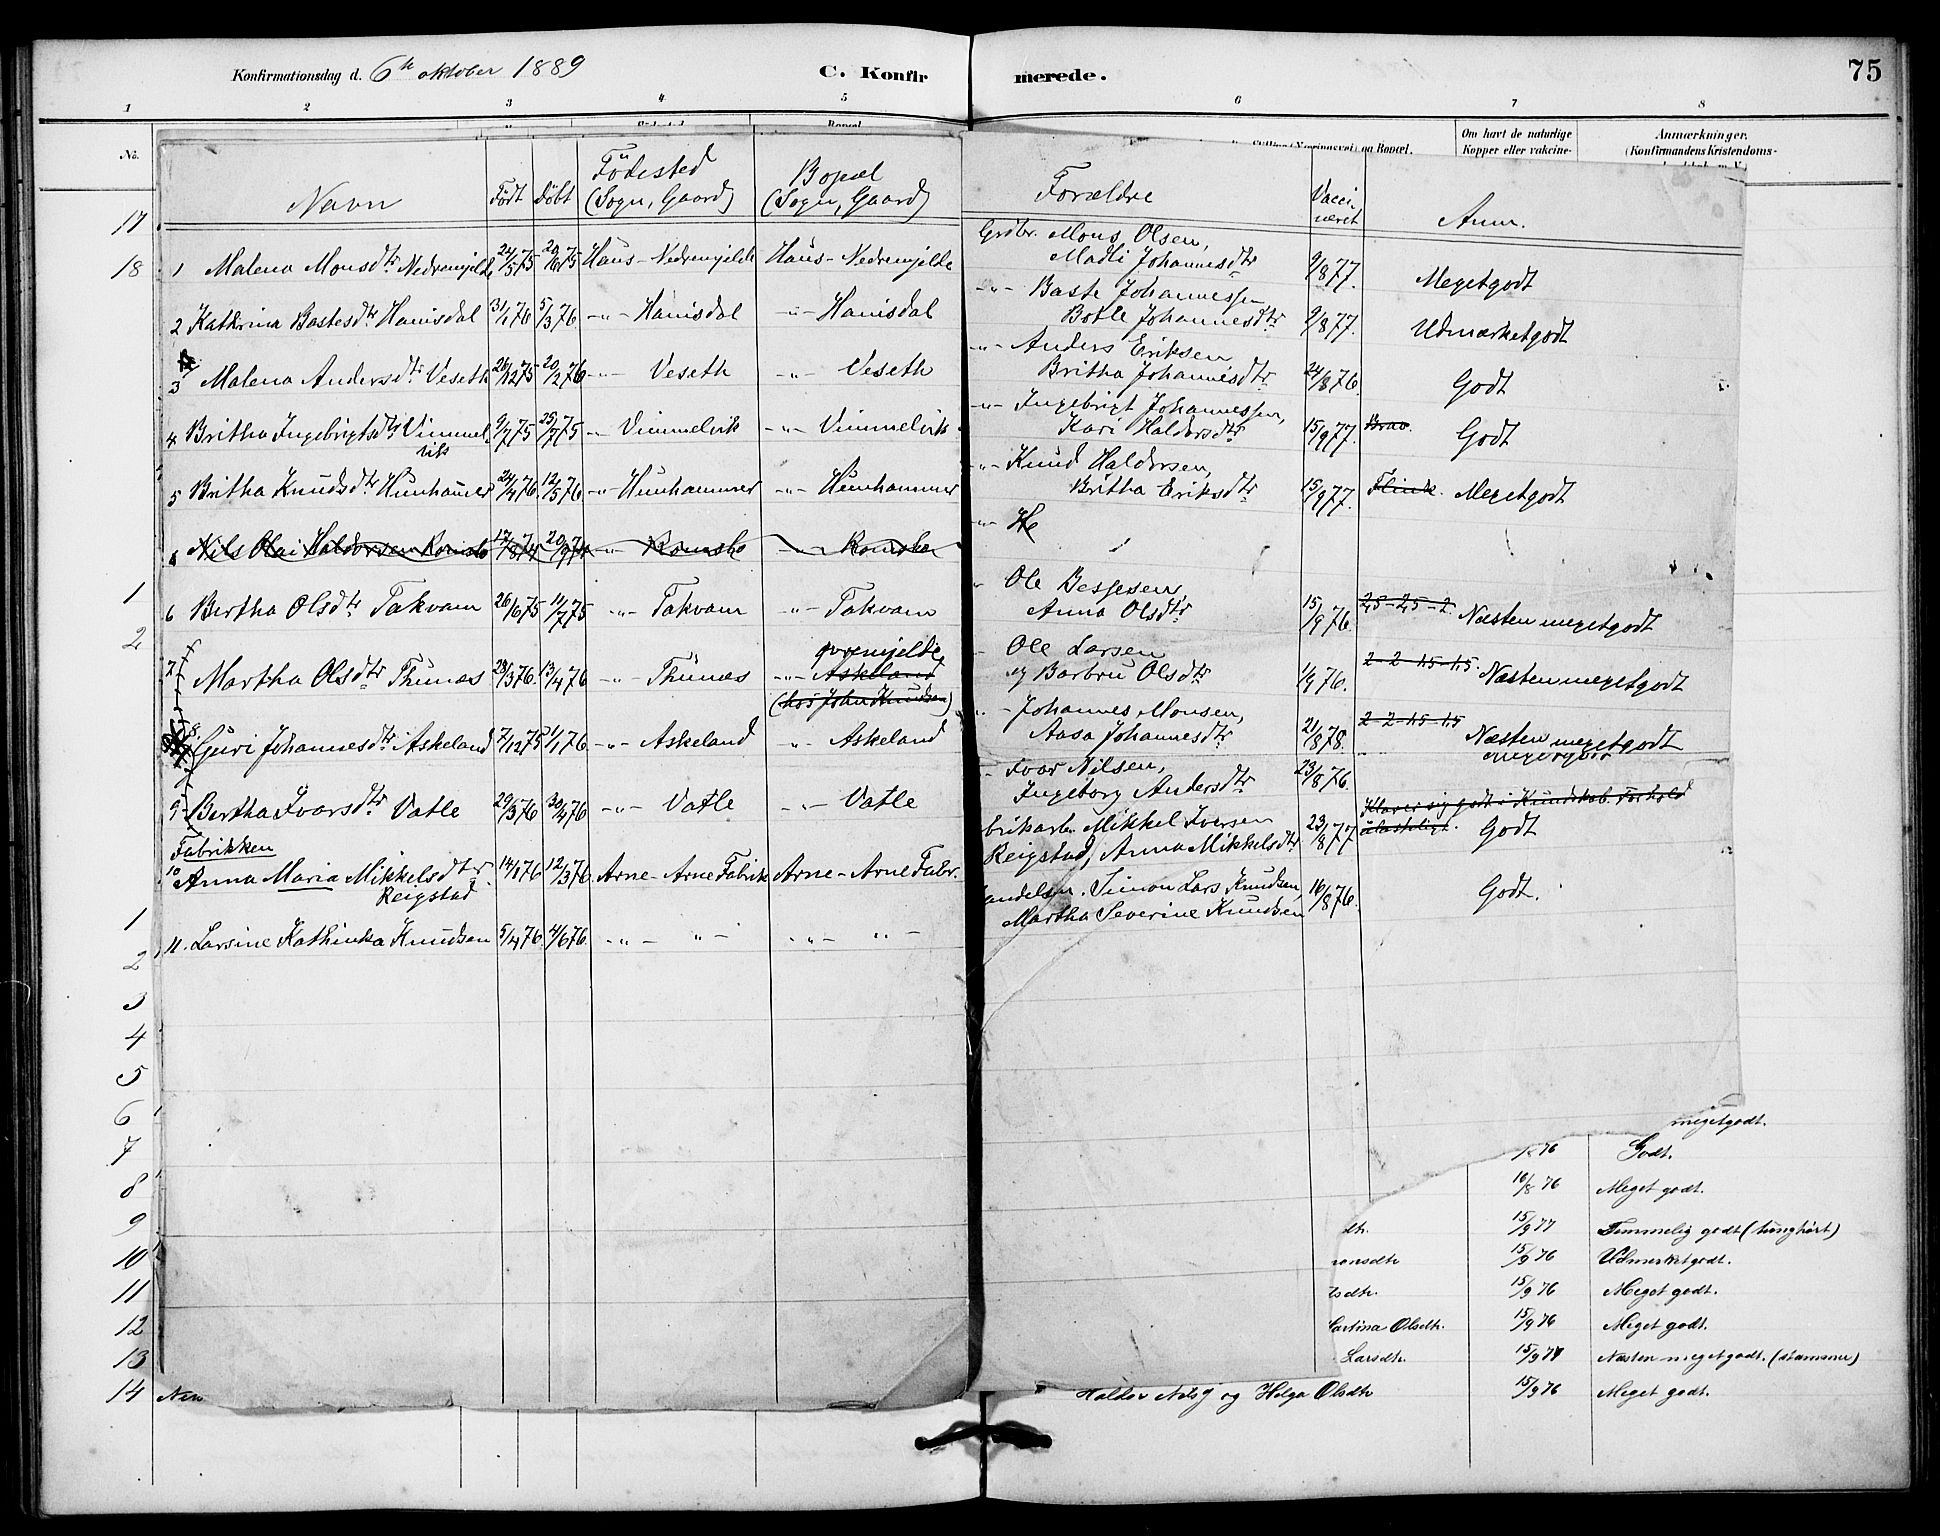 Konfirmationsdag d. 6te oktober 1889 C. Konfirmerede. 75
1 2 3 4 5 6 7 8
No. Stilling (Næringsvei) og Bopæl. Om havt de naturlige Anmærkninger.
Kopper eller vakcine- (Konfirmandens Kristendoms-
Navn Født Døbt Fødested (Sogn, Gaard) Bopæl (Sogn, Gaard) Forældre Vaccineret Anm.
17
18
1 Malena Monsdtr Nedremjelde 24/5 75 20/6 75 Haus - Nedremjelde Haus - Nedremjelde Grdbr. Mons Olsen,
Madli Johannesdtr 9/8 77. Megetgodt
2 Kathrina Bastesdtr Hanisdal 31/1 76 5/3 76 -"- Hanisdal -"- Hanisdal -"- Baste Johannessen
Botle Johannesdtr 9/8 77. Udmærketgodt
3 Malena Andersdtr Veseth 26/12 75 20/2 76 -"- Veseth -"- Veseth -"- Anders Eriksen
Britha Johannesdtr 24/8 76. Godt
4 Britha Ingebrigtsdtr Vimmelvik 9/7 75 25/7 75 -"- Vimmelvik -"- Vimmelvik -"- Ingebrigt Johannessen,
Kari Haldorsdtr 15/9 77. Brav. Godt
5 Britha Knudsdtr Hunhamer 24/4 76 12/5 76 -"- Hunhammer -"- Hunhammer -"- Knud Haldorsen,
Britha Eriksdtr 15/9 77. Flink. Megetgodt
6 Nils Olai Haldorsen Romslo 17/8 74 20/9 74 -"- Romslo -"- Romslo -"- He
1
2
6 Bertha Olsdtr Takvam 26/6 75 11/7 75 -"- Takvam -"- Takvam Ole Besjesen,
Anna Olsdtr 15/9 76. 2,5-2,5-2. Næsten megetgodt
7 Martha Olsdtr Thunes 28/3 76. 13/4 76 -"- Thunes -"- Askeland
øvremjelde
(hos John Knudsen)
Ole Larsen
og Barbru Olsdtr 1/9 76. 2-2-1.5-1.5. Næsten megetgodt
8. Guri Johannesdtr Askeland 7/12 75 1/1 76 -"- Askeland -"- Askeland -"- Johannes Monsen,
Aasa Johannesdtr 21/8 78. 2-2-1.5-1.5 Næsten megetgodt
9 Bertha Ivarsdtr Vatle 29/3 76 30/4 76 -"- Vatle -"- Vatle - Ivar Nilsen,
Ingeborg Andersdtr 23/8 76. Megetgodt
Fabrikken
10 Anna Maria Mikkelsdtr Reigstad 14/1 76 12/3 76. Arne - Arne Fabrik Arne - Arne Fabr. brikarb. Mikkel Iversen
Reigstad, Anna Mikkelsdtr 23/8 77 Klarer sig godt i Kundskab. Forhold
Godt
11. Larsine Kathinka Knudsen 5/4 76. 4/6 76. -"- "- -"- "- andelsm. Simon Lars Knudsen,
Martha Severine Knudsen 16/8 76. Godt.
1
2
3
4
5
6 megetgodt.
7 76 Godt.
8 16/8 76 Meget godt.
9 dtr. 15/9 77 Temmelig godt (tunghørt)
10 onsdtr 15/9 76 Udmerketgodt.
11 lsdtr. 15/9 76 Meget godt.
12 Martina Olsdtr. 15/9 76 Meget godt.
13 Larsdtr. 15/9 77 Næsten megetgodt. (stammer)
14 Haldor Nilsj og Helga Olsdtr 15/9 76 Meget godt.